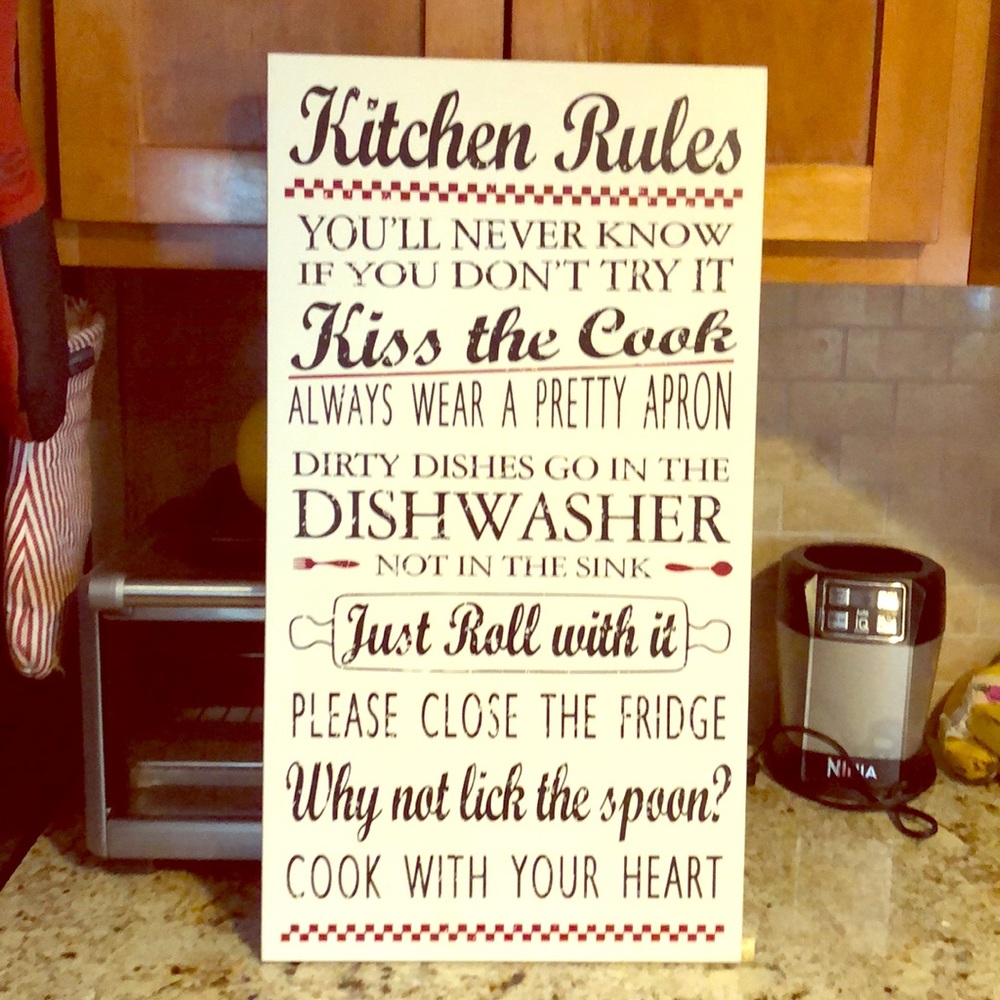 Kitchen Rules
YOU'LL NEVER KNOW
IF YOU DON'T TRY IT
Kiss the Cook
ALWAYS WEAR A PRETTY APRON
DIRTY DISHES GO IN THE
DISHWASHER
NOT IN THE SINK
Just Roll with it
PLEASE CLOSE THE FRIDGE
Why not lick the spoon?
COOK WITH YOUR HEART
NINJA